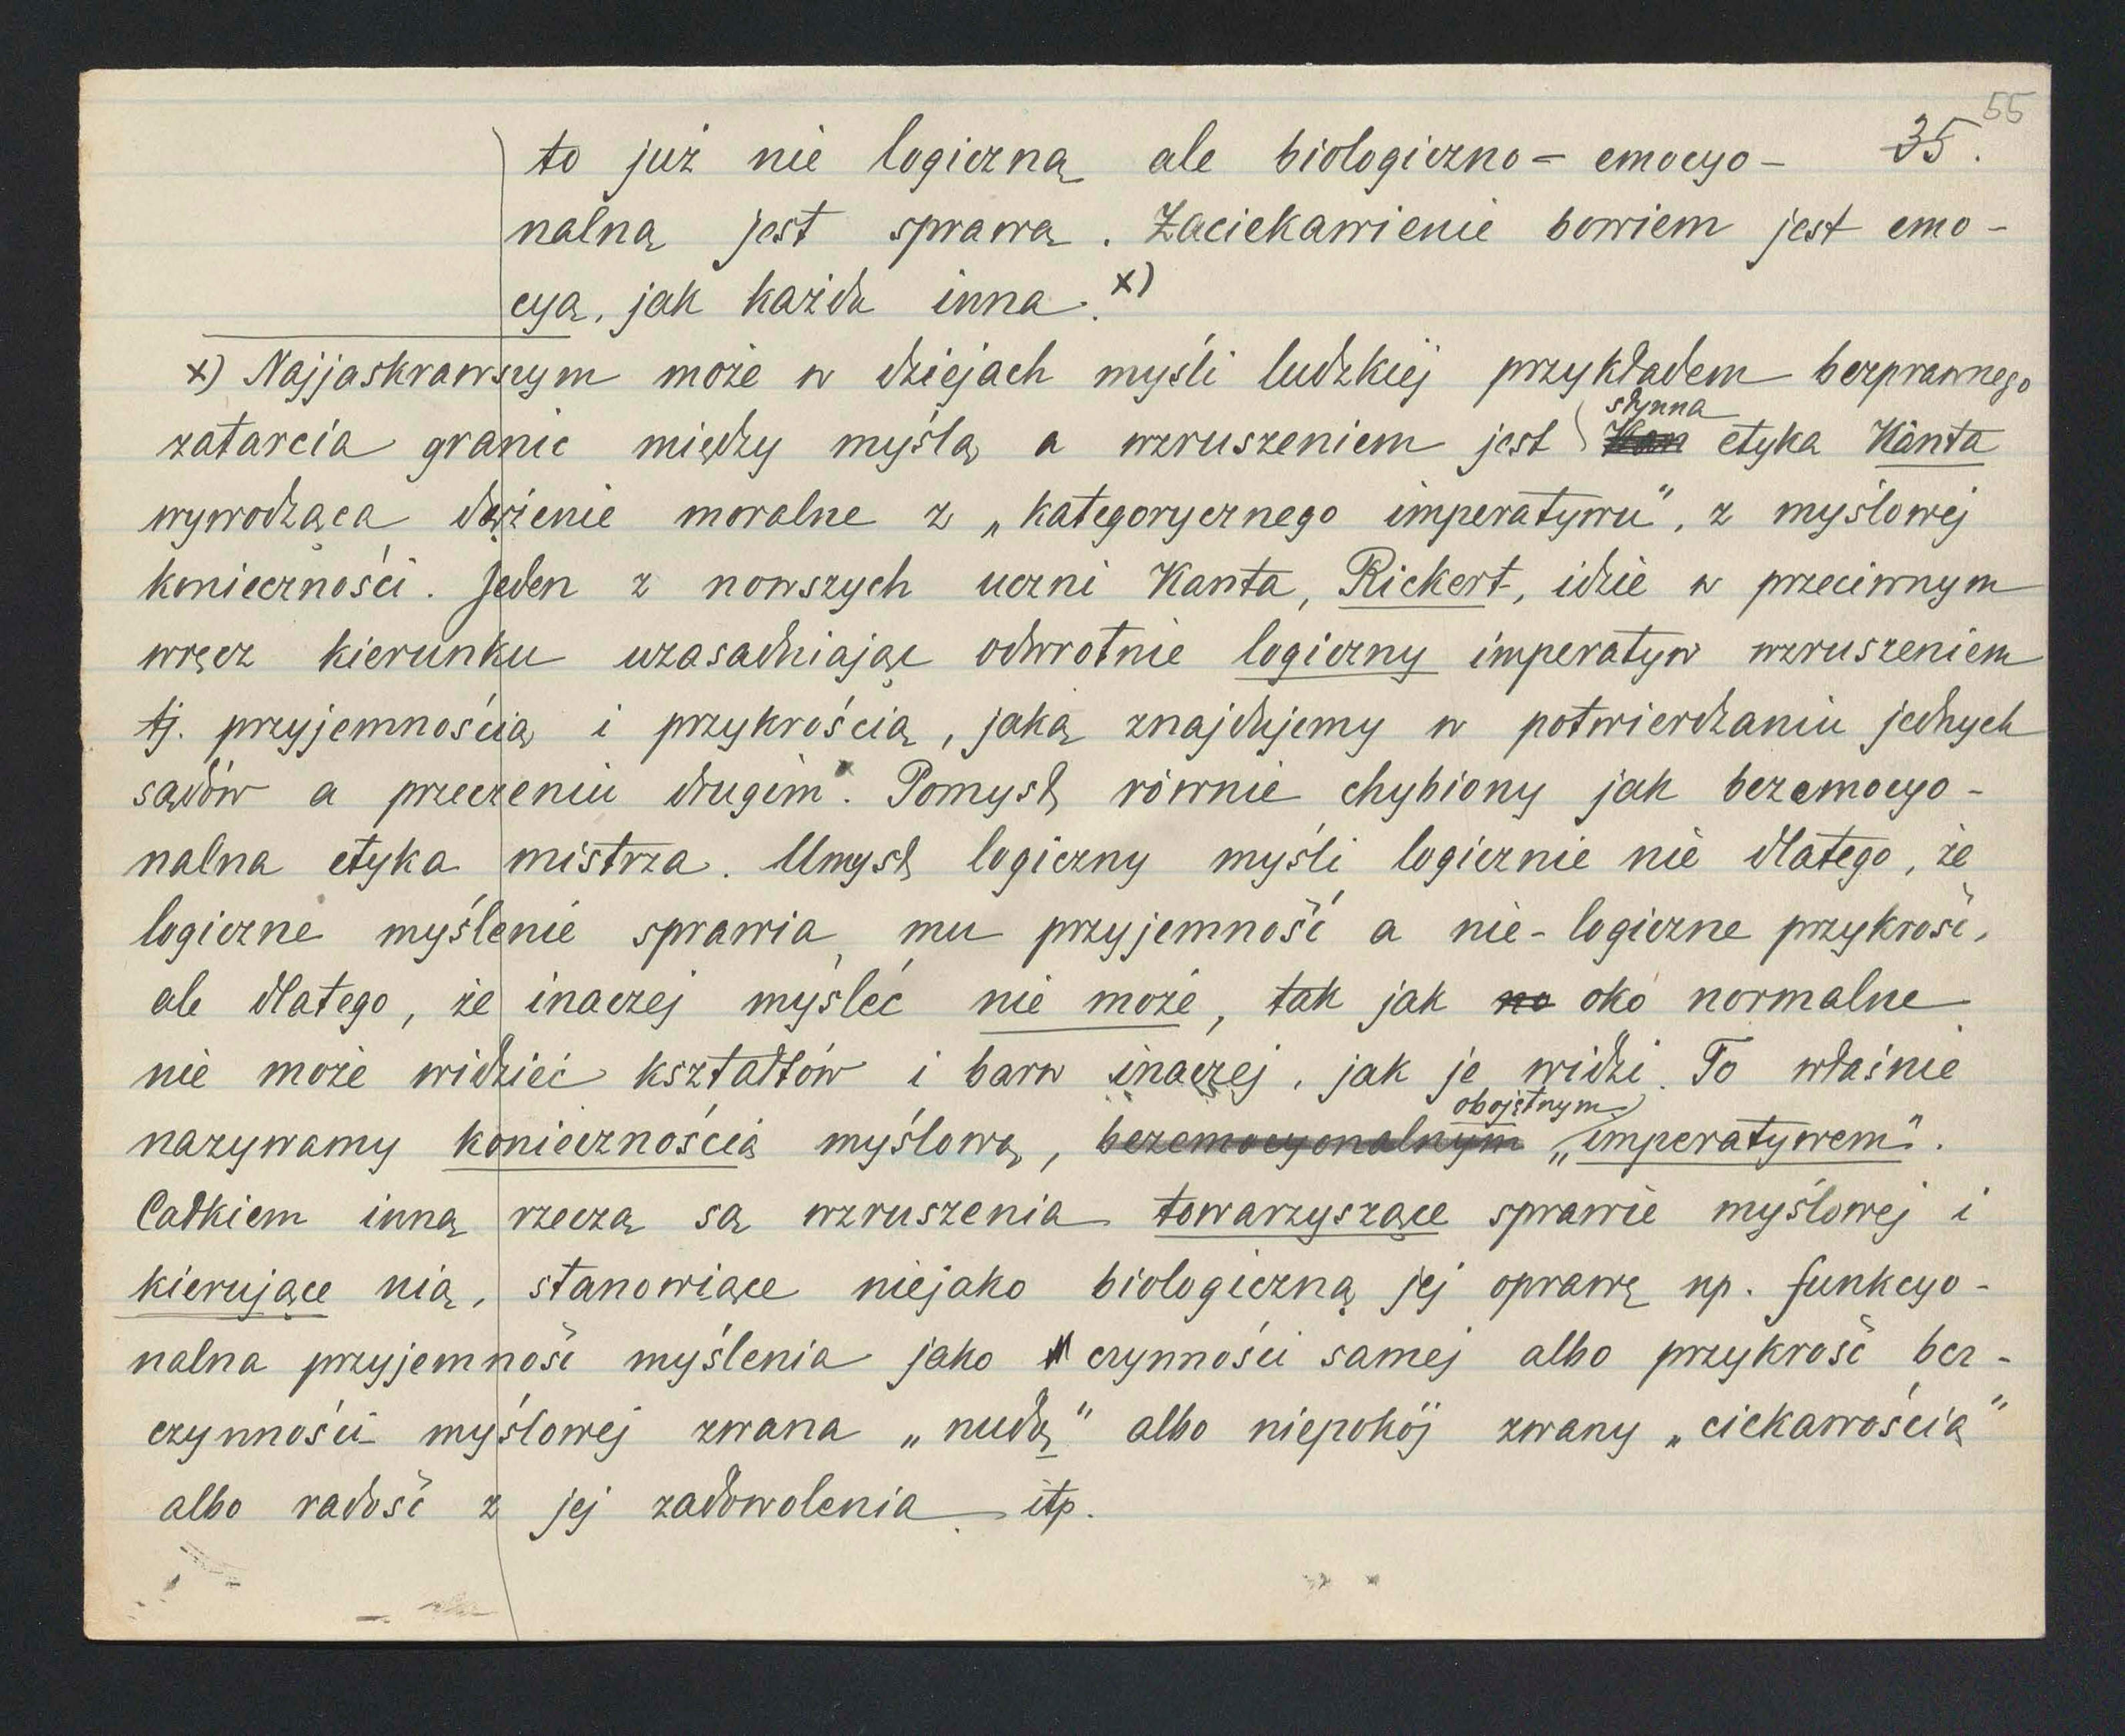 55
to już nie logiczną ale biologiczno- emocyo- 35.
nalną jest sprawą. Zaciekawienie bowiem jest emo-
cyą, jak każda inna.x)
x) Najjaskrawszym może w dziejach myśli ludzkiej przykładem bezprawnego
słynna
zatarcia granic między myślą a wzruszeniem jest etyka Kanta
wywodząca dążenie moralne z „kategorycznego imperatywu", z myślowej
konieczności. Jeden z nowszych uczni Kanta, Rickert, idzie w przeciwnym
wręcz kierunku uzasadniając odwrotnie logiczny imperatyw wzruszeniem
tj. przyjemnością i przykrością, jaką znajdujemy w potwierdzaniu jednych
sądów a przeczeniu drugim. Pomysł równie chybiony jak bezemocyo-
nalna etyka mistrza. Umysł logiczny myśli logicznie nie dlatego, że
logiczne myślenie sprawia mu przyjemność a nie-logiczne przykrość,
ale dlatego, że inaczej myśleć nie może, tak jak no oko normalne
nie może widzieć kształtów i barw inaczej, jak je widzi. To właśnie
obojętnym
nazywamy koniecznością myślową, bezemocyonalnym „imperatywem".
Całkiem inną rzeczą są wzruszenia towarzyszące sprawie myślowej i
kierujące nią, stanowiące niejako biologiczną jej oprawę np. funkcyo-
nalna przyjemność myślenia jako czynności samej albo przykrość bez-
czynności myślowej zwana „nudą" albo niepokój zwany „ciekawością"
albo radość z jej zadowolenia itp.